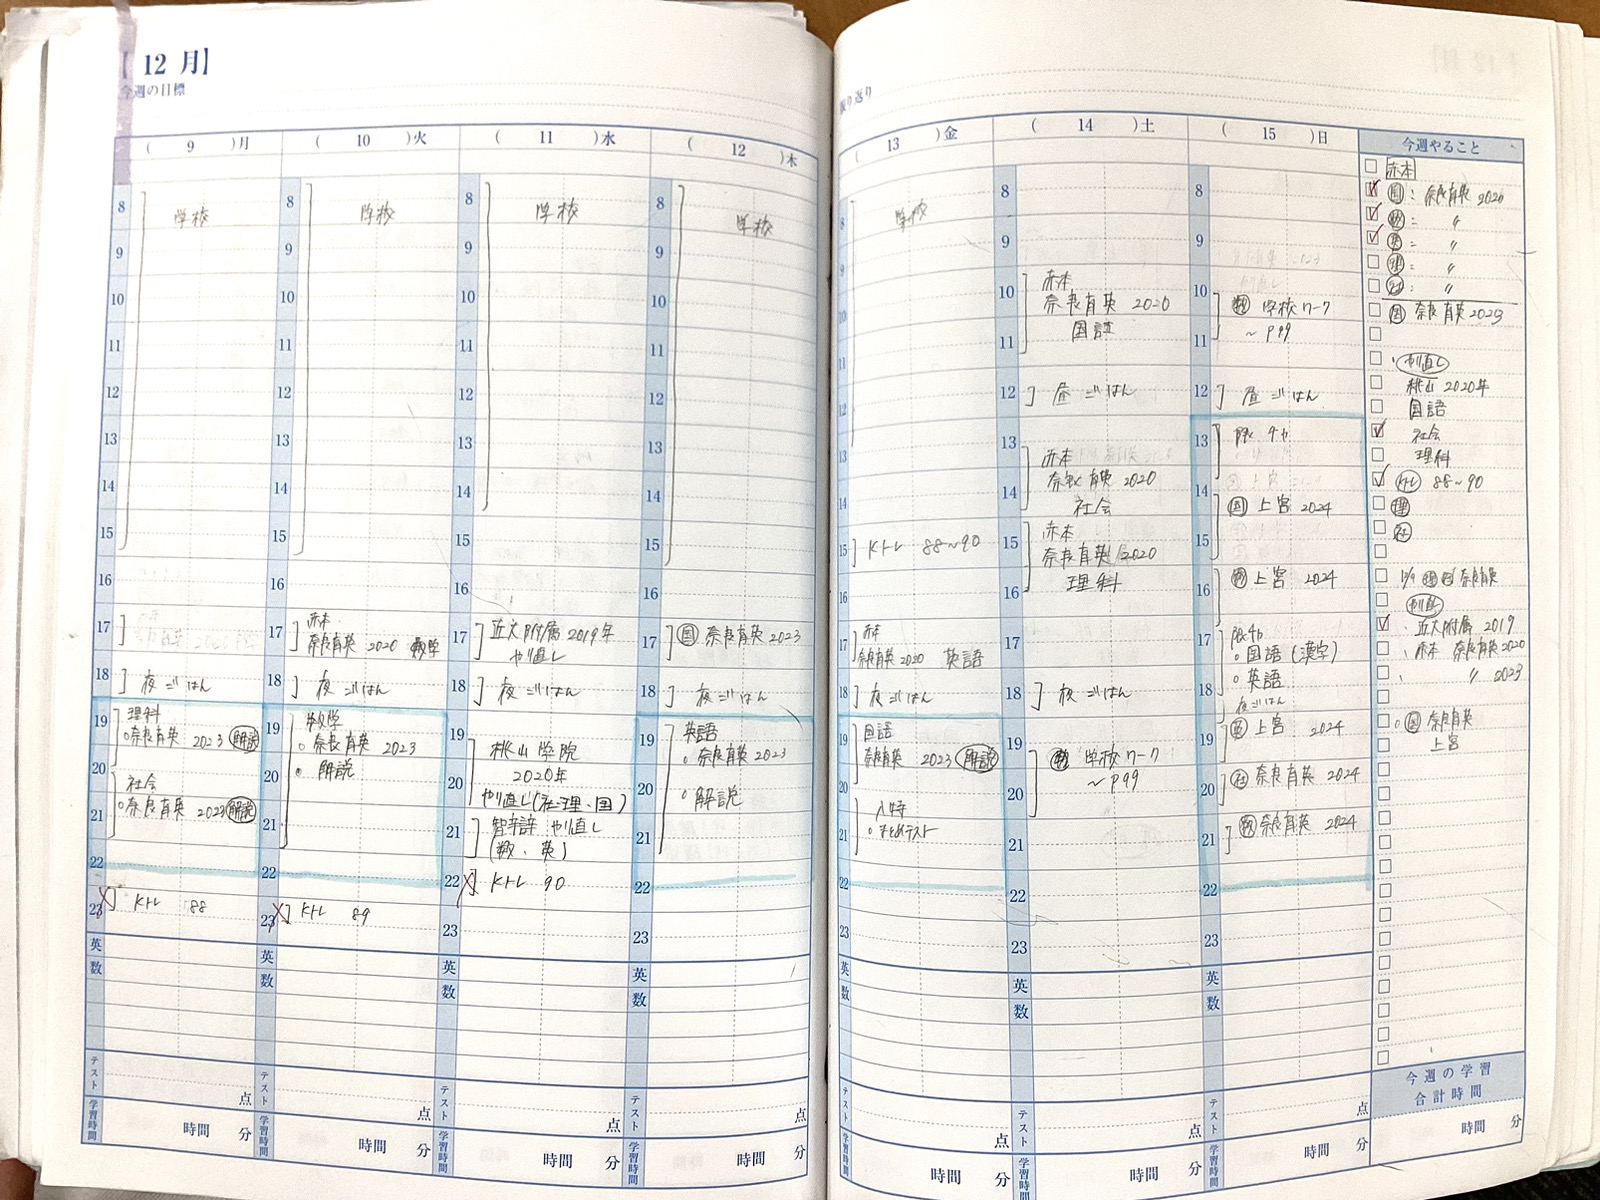 【 12 月】
今週の目標
( 9 )月
8
学校
9
10
11
12
13
14
15
16
17
18
夜ごはん
19
理科
○奈良育英 2023 解説
20
社会
○奈良育英 2023 解説
21
22
23
Kトレ 88
英
数
テスト
点
学習時間
時間 分
( 10 )火
8
学校
9
10
11
12
13
14
15
16
17
赤本
奈良育英 2020 数学
18
夜ごはん
19
数学
○ 奈良育英 2023
20
○ 解説
21
22
23
Kトレ 89
英
数
テスト
点
学習時間
時間 分
( 11 )水
8
学校
9
10
11
12
13
14
15
16
17
近大附属 2019年
やり直し
18
夜ごはん
19
桃山学院
2020年
20
やり直し(社・理・国)
21
やり直し
(数、英)
22
Kトレ 90
23
英
数
テスト
点
学習時間
時間 分
( 12 )木
8
学校
9
10
11
12
13
14
15
16
17
国 奈良育英 2023
18
夜ごはん
19
英語
○ 奈良育英 2023
20
○ 解説
21
22
23
英
数
テスト
点
学習時間
時間 分
振り返り
( 13 )金
8
学校
9
10
11
12
13
14
15
Kトレ 88~90
16
17
赤本
奈良育英 2020 英語
18
夜ごはん
19
国語
奈良育英 2023 解説
20
入特
○ まとめテスト
21
22
23
英
数
テスト
点
学習時間
時間 分
( 14 )土
8
9
10
赤本
奈良育英 2020
国語
11
12
昼ごはん
13
赤本
奈良育英 2020
14
社会
15
赤本
奈良育英 2020
理科
16
17
18
夜ごはん
19
数 学校ワーク
~P99
20
21
22
23
英
数
テスト
点
学習時間
時間 分
( 15 )日
8
9
10
数 学校ワーク
~P99
11
12
昼ごはん
13
限チャ
14
国 上宮 2024
15
16
数 上宮 2024
17
限チャ
○国語(漢字)
○英語
18
夜ごはん
19
英 上宮 2024
20
社 奈良育英 2024
21
数 奈良育英 2024
22
23
英
数
テスト
点
学習時間
時間 分
今週やること
赤本
国: 奈良育英 2020
数: 〃
英: 〃
理: 〃
社: 〃
国 奈良育英 2023
やり直し
桃山 2020年
国語
社会
理科
Kトレ 88~90
理
社
奈良育英
やり直し
・近大附属 2019
・赤本 奈良育英 2020
・ 〃 2023
○ 国 奈良英
上宮
今週の学習
合計時間
時間 分